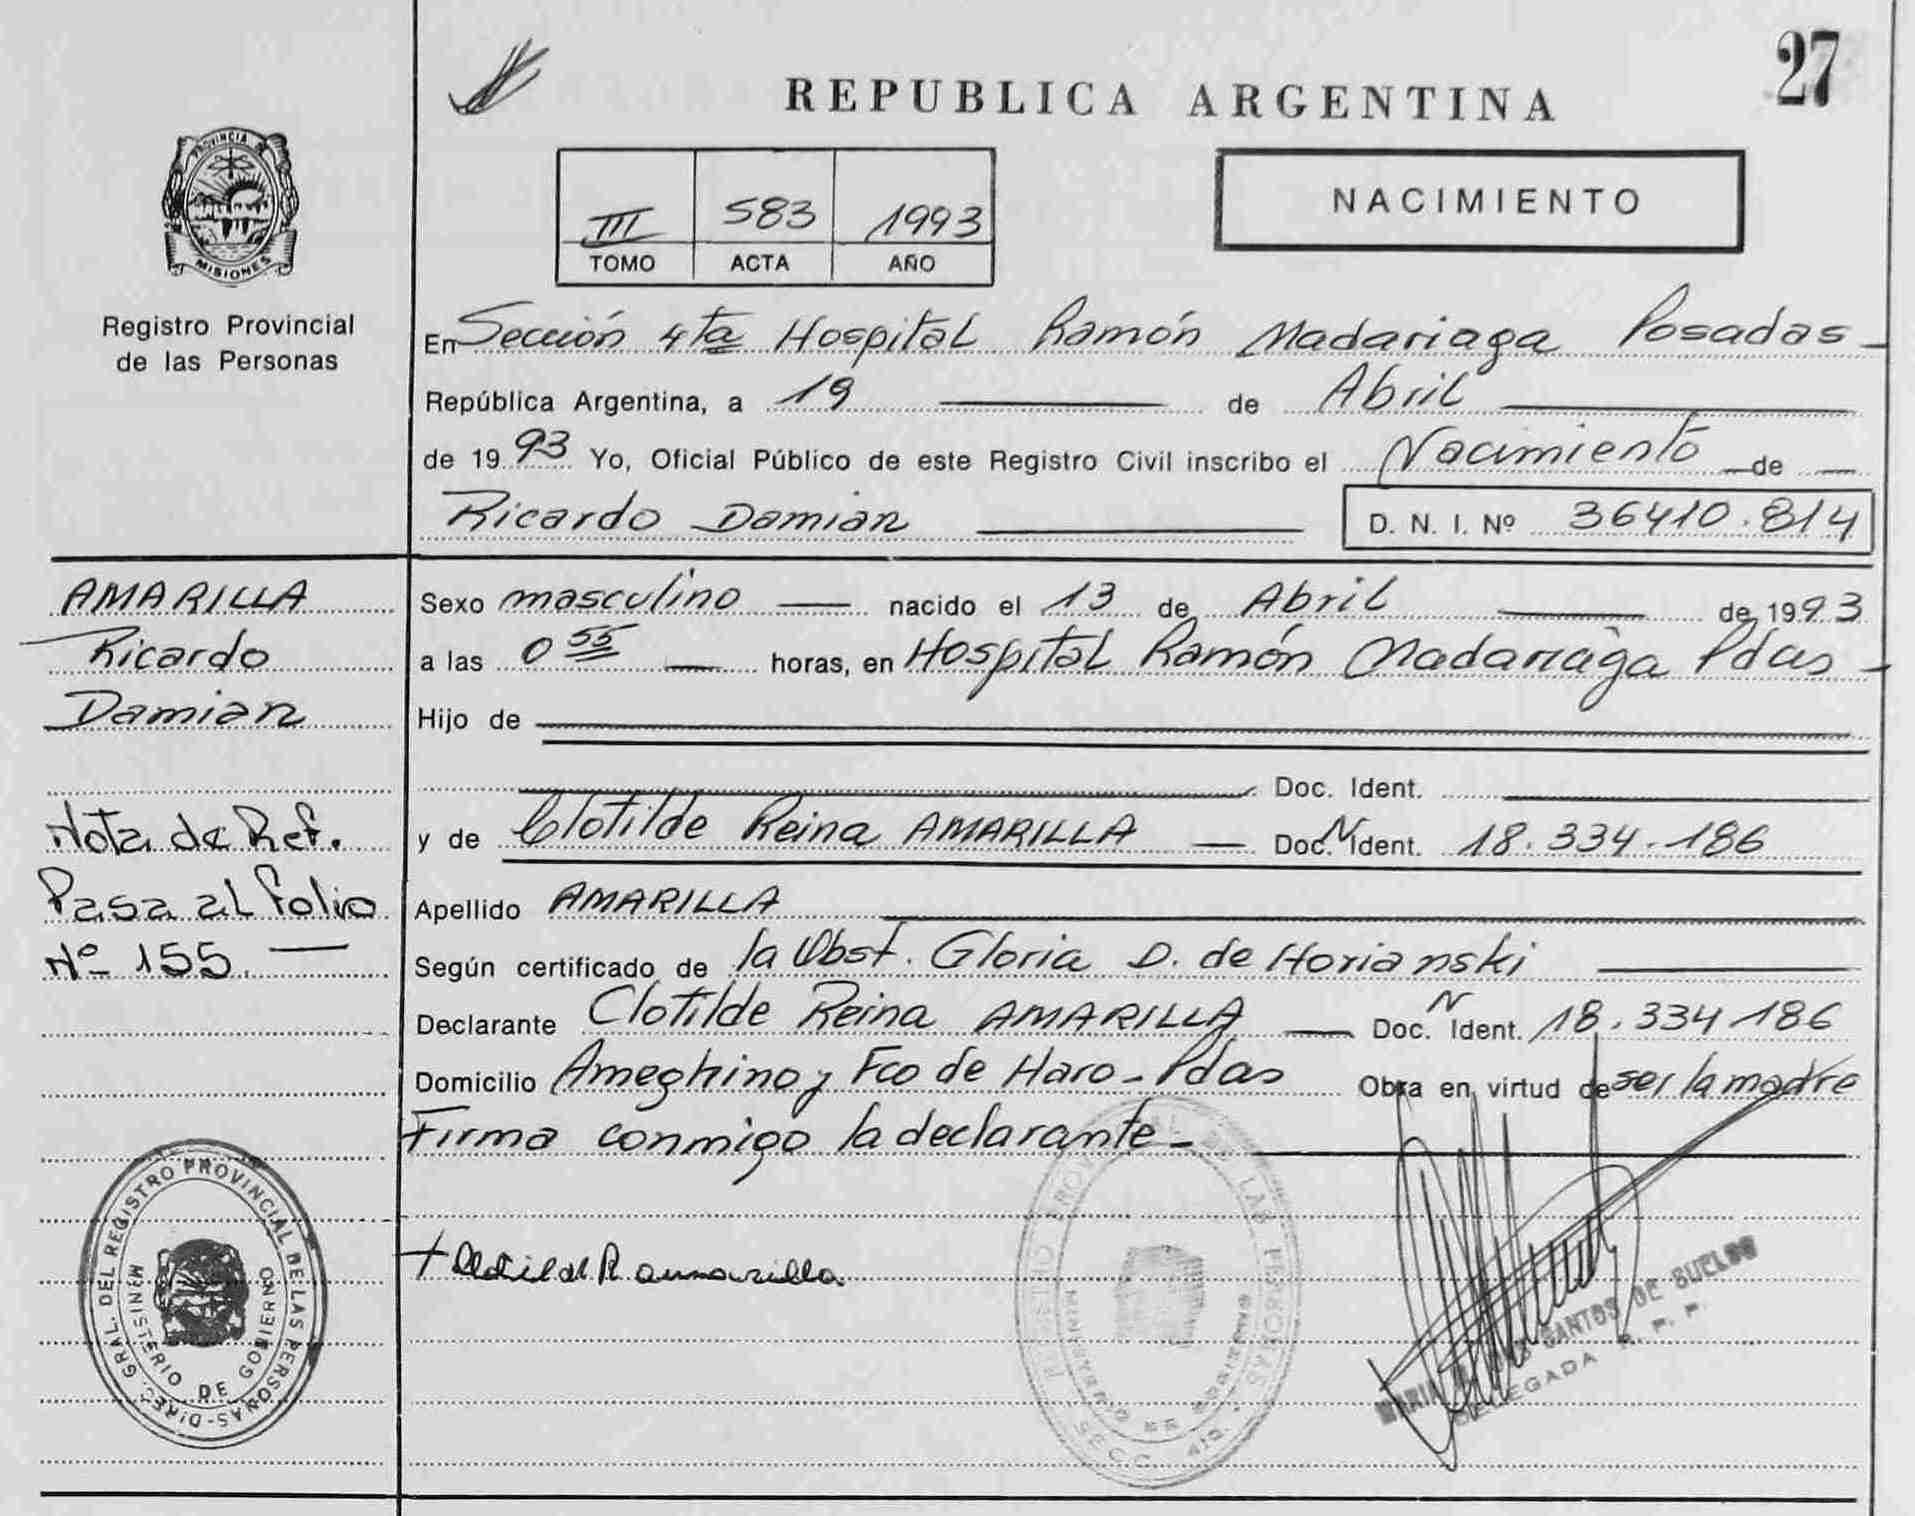 27
REPUBLICA ARGENTINA
NACIMIENTO
III 583 1993
TOMO ACTA AÑO
PROVINCIA DE
MISIONES
Registro Provincial
de las Personas
En Sección 4ta Hospital Ramón Madariaga Posadas
República Argentina, a 19 de Abril
de 1993 Yo, Oficial Público de este Registro Civil inscribo el Nacimiento de
Ricardo Damian D. N. I. Nº 36410.814
AMARILLA
Ricardo
Damian
Nota de Ref.
Pasa al folio
Nº 155.
Sexo masculino nacido el 13 de Abril de 1993
a las 0 55 horas, en Hospital Ramón Madariaga Pdas
Hijo de
Doc. Ident.
y de Clotilde Reina AMARILLA Doc. N Ident. 18.334.186
Apellido AMARILLA
Según certificado de la Obst. Gloria D. de Horianski
Declarante Clotilde Reina AMARILLA Doc. N Ident. 18.334.186
Domicilio Ameghino y Fco de Haro - Pdas Obra en virtud de ser la madre
Firma conmigo la declarante -
DIREC. GRAL. DEL REGISTRO PROVINCIAL DE LAS PERSONAS
MINISTERIO DE GOBIERNO
REGISTRO PROVINCIAL DE LAS PERSONAS
MINISTERIO DE GOBIERNO
SECC. 4ta.
SANTOS DE BUELOS
DELEGADA R. P. P.